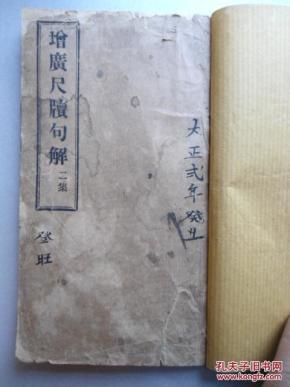 增廣尺牘句解 二集
大正弍年癸丑
登旺
孔夫子旧书网